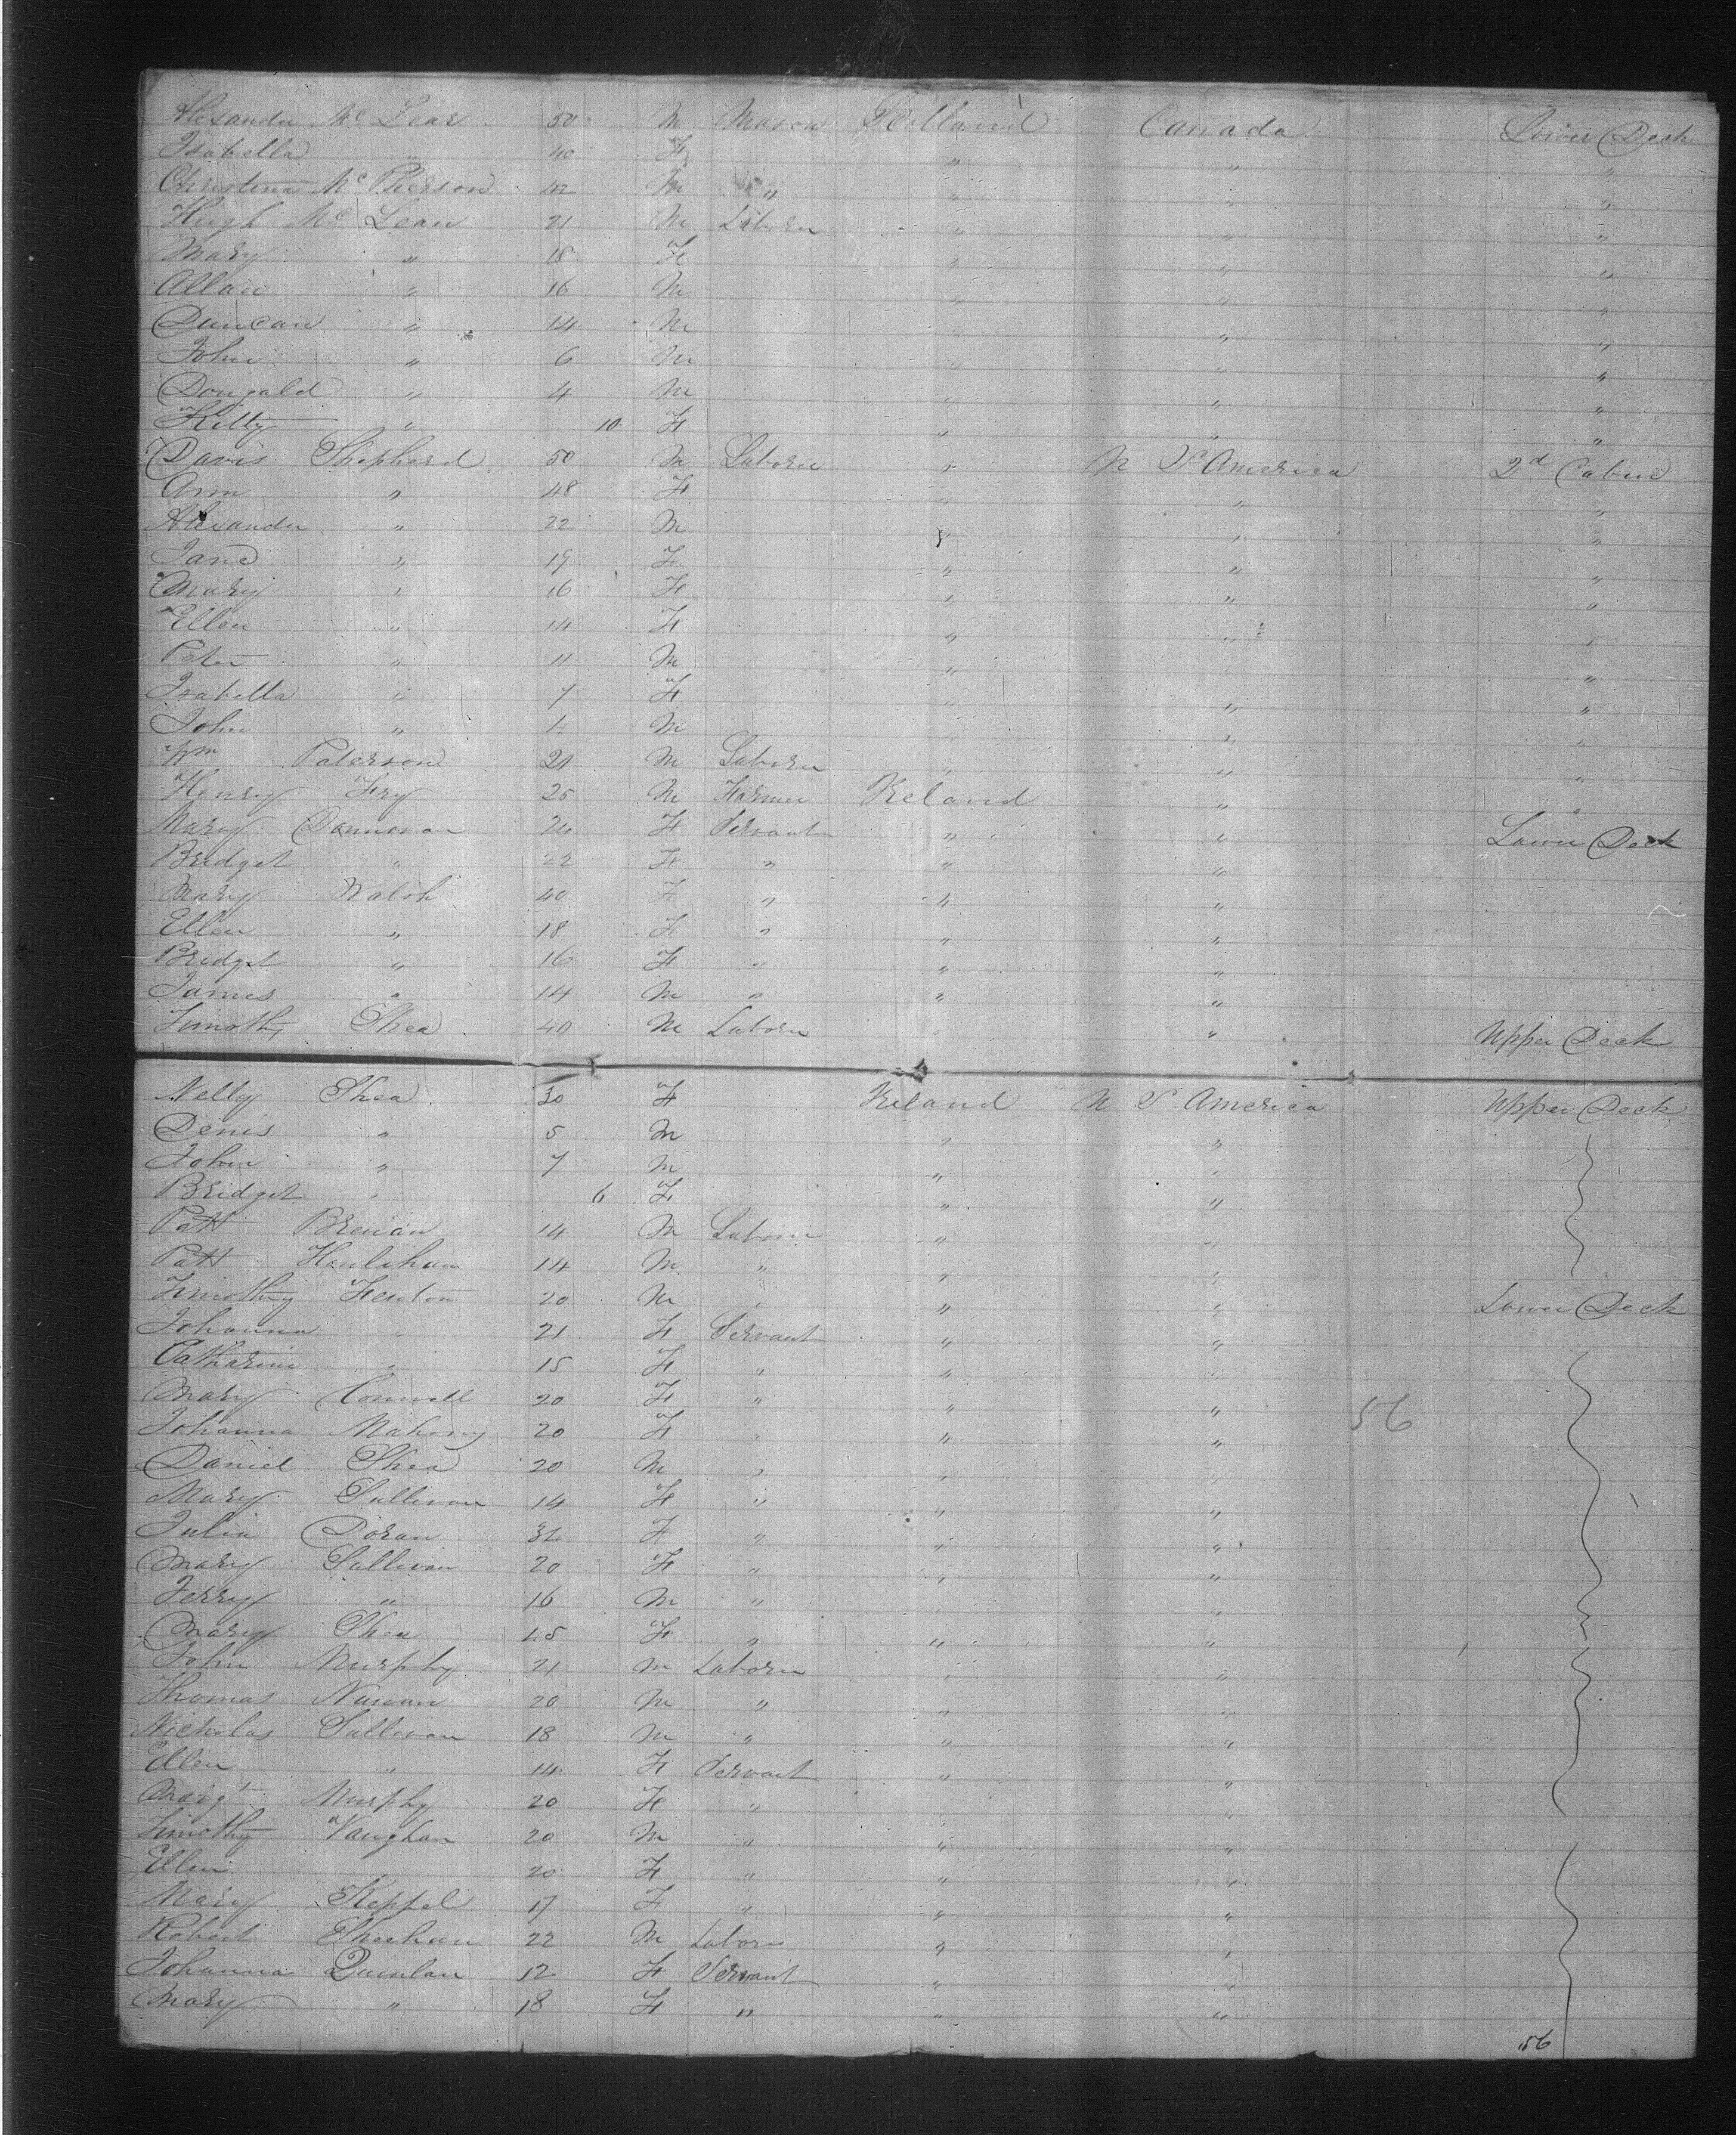 Alexander Mc Lean 50 M Mason Scotland Canada Lower Deck
Isabella " 40 F " " "
Christina Mc Pherson 42 M " " " "
Hugh Mc Lean 21 M Laborer " " "
Mary " 18 F " " "
Allan " 16 M " " "
Duncan " 14 M " " "
John " 6 M " " "
Dougald " 4 M " " "
Kitty " 10 F " " "
David Shepherd 50 M Laborer " N S America 2d Cabin
Ann " 48 F " " "
Alexander " 22 M " " "
Jane " 19 F " " "
Mary " 16 F " " "
Ellen " 14 F " " "
Peter " 11 M " " "
Isabella " 7 F " " "
John " 4 M " " "
Wm Paterson 21 M Laborer " " "
Henry Fry 25 M Farmer Ireland " "
Mary Donnovan 24 F Servant " " Lower Deck
Bridget " 22 F " " "
Mary Walsh 40 F " " "
Ellen " 18 F " " "
Bridget " 16 F " " "
James " 14 M " " "
Timothy Shea 40 M Laborer " " Upper Deck
Nelly Shea 30 F Ireland N S America Upper Deck
Denis " 5 M " "
John " 7 M " "
Bridget " 6 F " "
Patt Brenan 14 M Laborer " "
Patt Houlihan 14 M " " "
Timothy Fenton 20 M " " " Lower Deck
Johanna " 21 F Servant " "
Catharine " 15 F " " "
Mary Connell 20 F " " "
Johanna Mahony 20 F " " " 56
Daniel Shea 20 M " " "
Mary Sullivan 14 F " " "
Julia Doran 32 F " " "
Mary Sullivan 20 F " " "
Jerry " 16 M " " "
Mary Shea 45 F " " "
John Murphy 21 M Laborer " "
Thomas Nunan 20 M " " "
Nicholas Sullivan 18 M " " "
Ellen " 14 F Servant " "
Margt Murphy 20 F " " "
Timothy Vaughan 20 M " " "
Ellen " 20 F " " "
Mary Keppel 17 F " " "
Robert Sheehan 22 M Laborer " "
Johanna Quinlan 12 F Servant " "
Mary " 18 F " " "
56